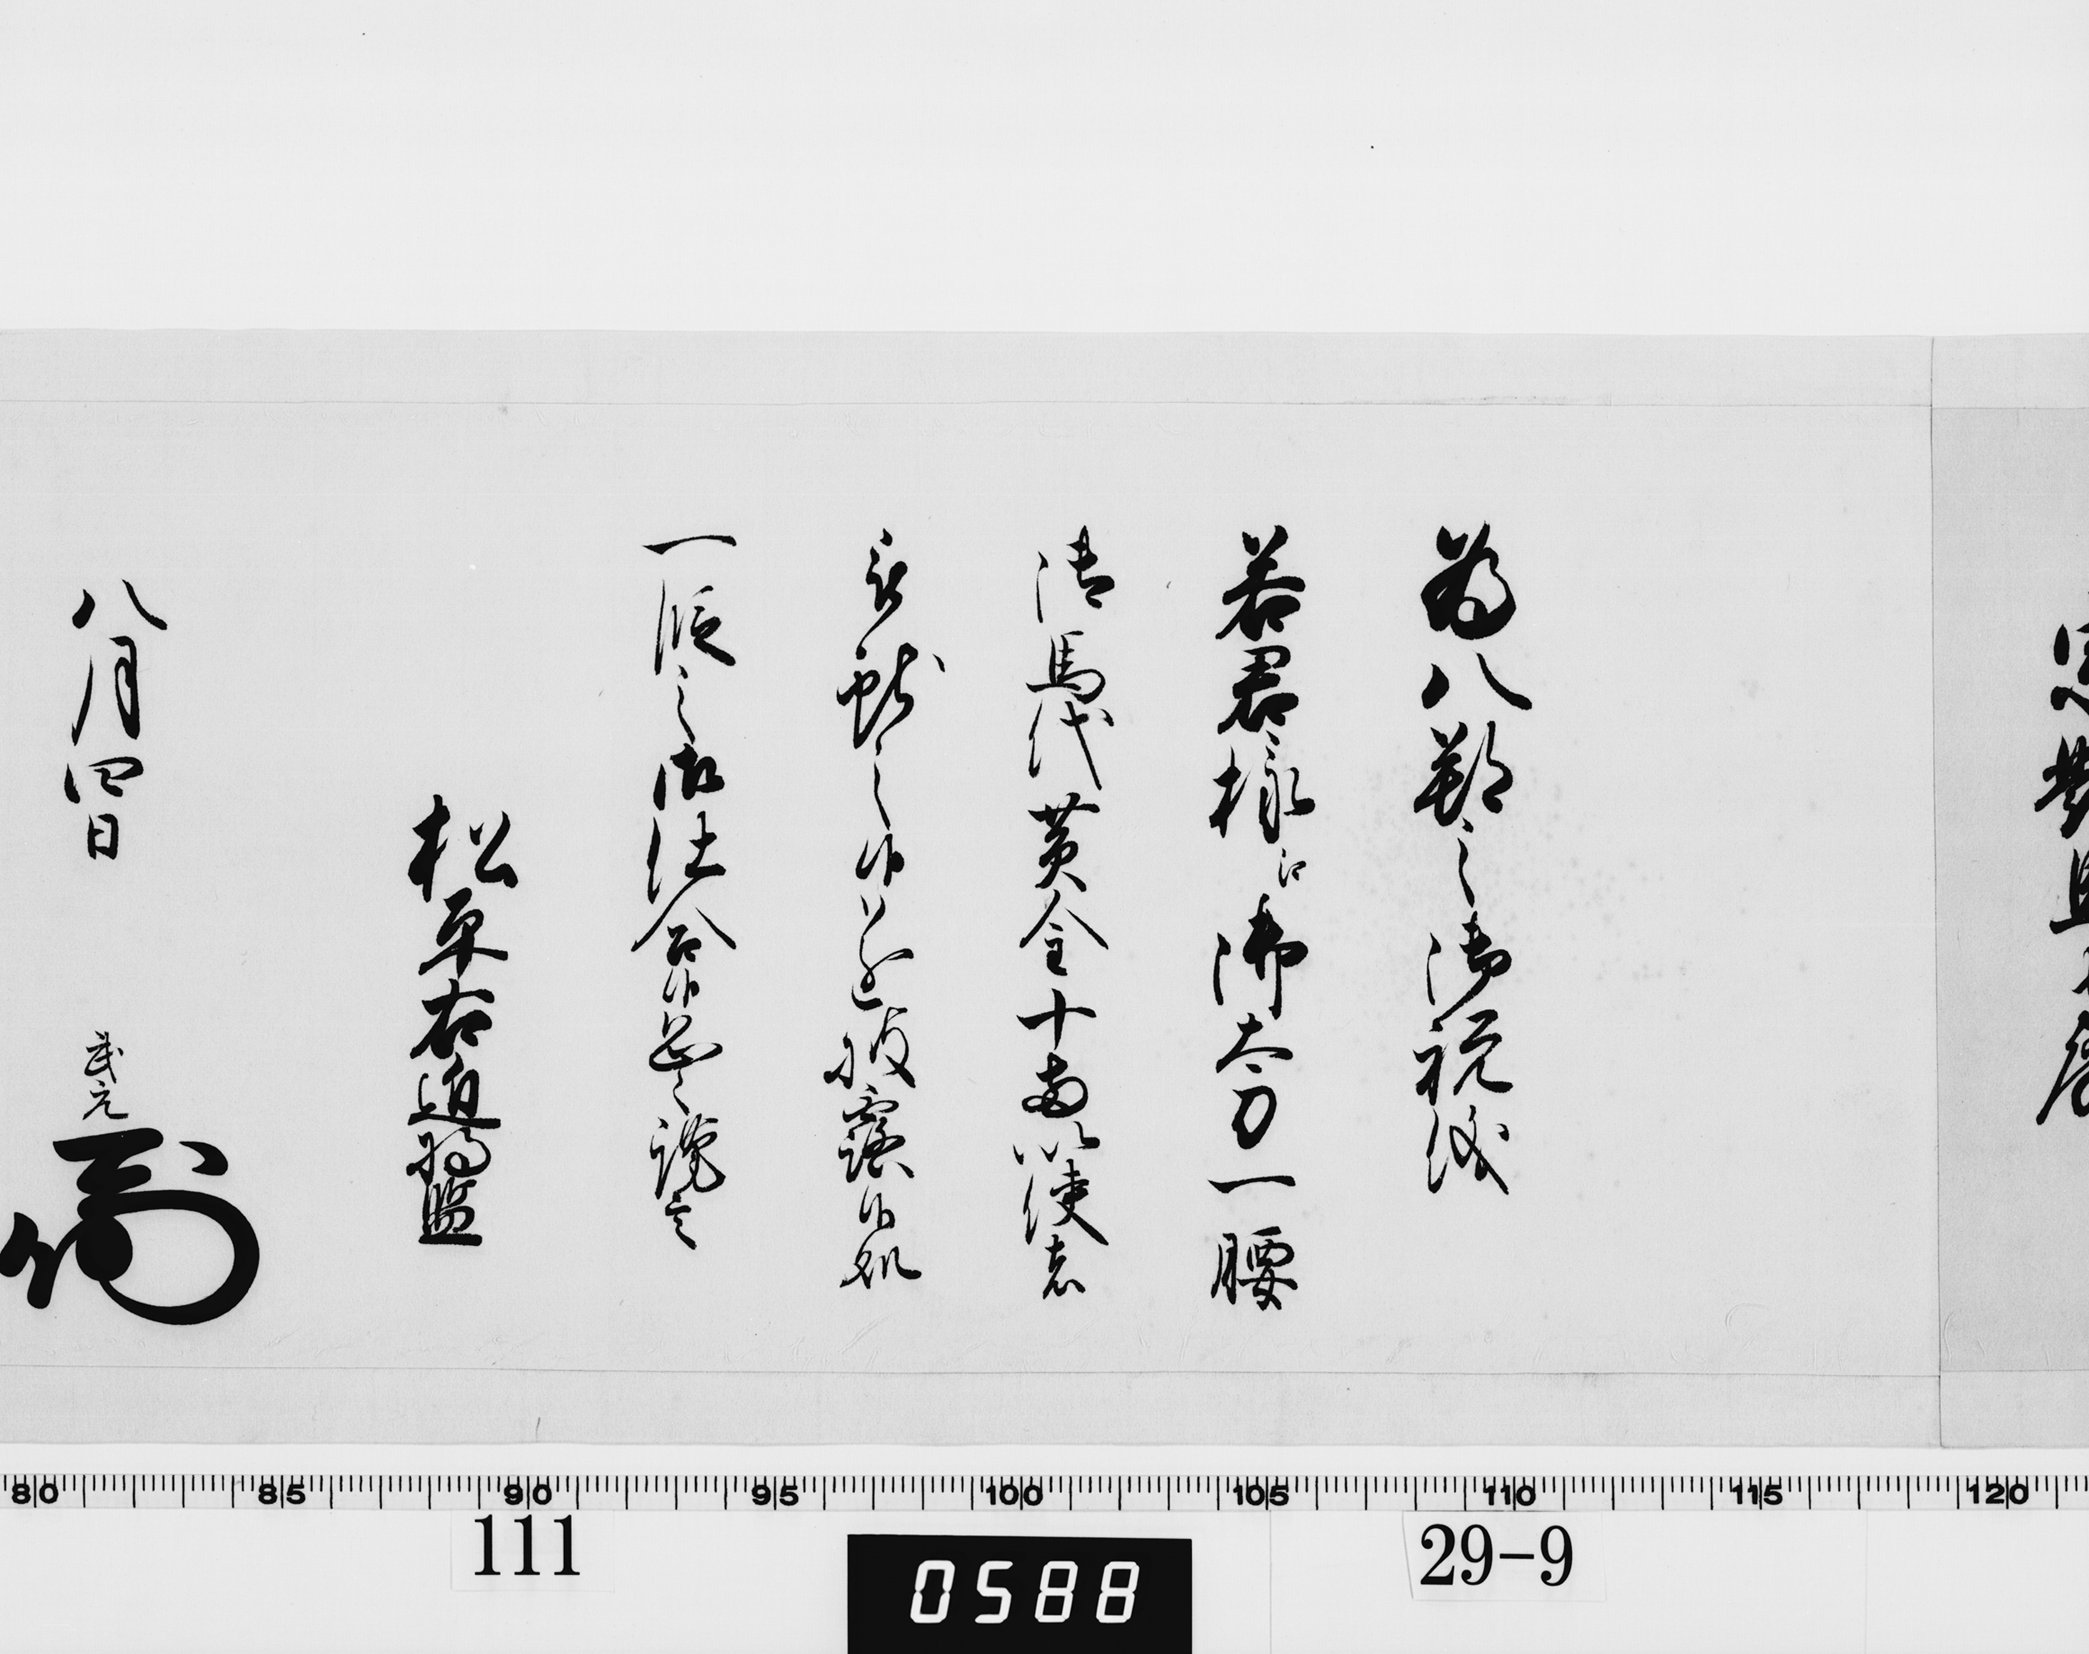 為八朔之御祝儀
若君様江御太刀一腰
御馬代黄金十両以使者
被献之候遂披露候処
一段之御仕合候恐々謹言
松平右近将監
八月四日 武元
80 85 90 95 100 105 110 115 120
111
0588
29-9